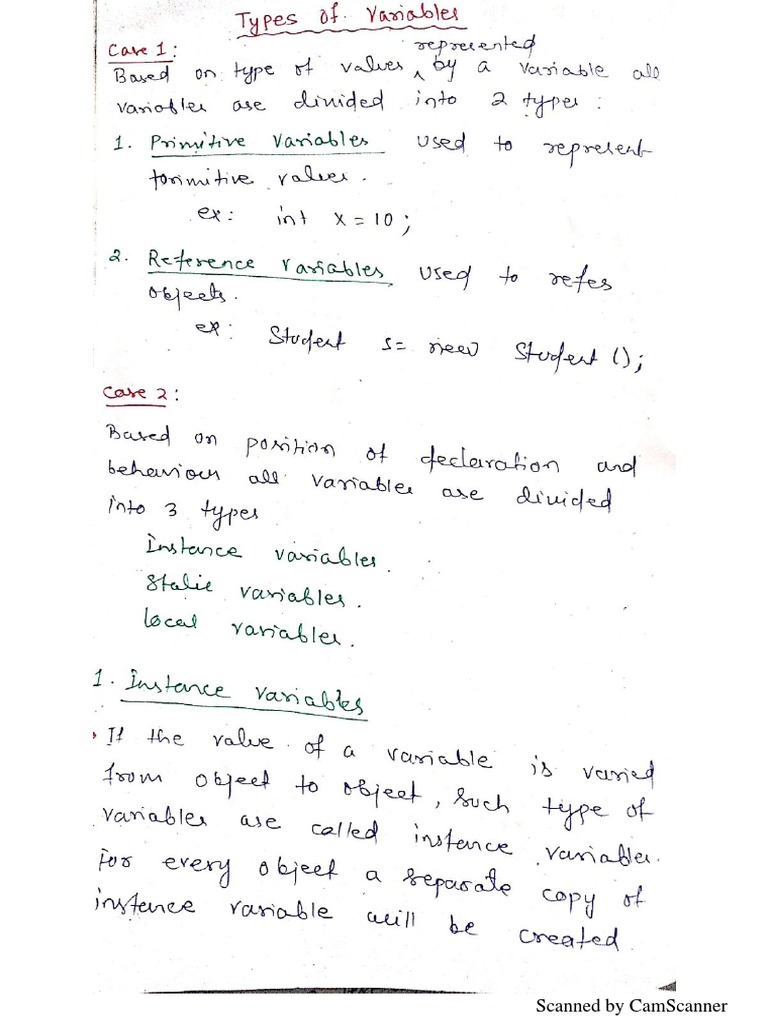 Types of Variables
Case 1:
represented
Based on type of values ^ by a variable all
variables are divided into 2 types :
1. Primitive Variables used to represent
primitive values.
ex: int x = 10 ;
2. Reference Variables used to refer
objects.
ex: Student s = new Student ();
Case 2 :
Based on position of declaration and
behaviour all variables are divided
into 3 types
Instance variables.
Static variables.
Local variables.
1. Instance Variables
If the value of a variable is varied
from object to object, such type of
variables are called instance variables.
For every object a separate copy of
instance variable will be created.
Scanned by CamScanner